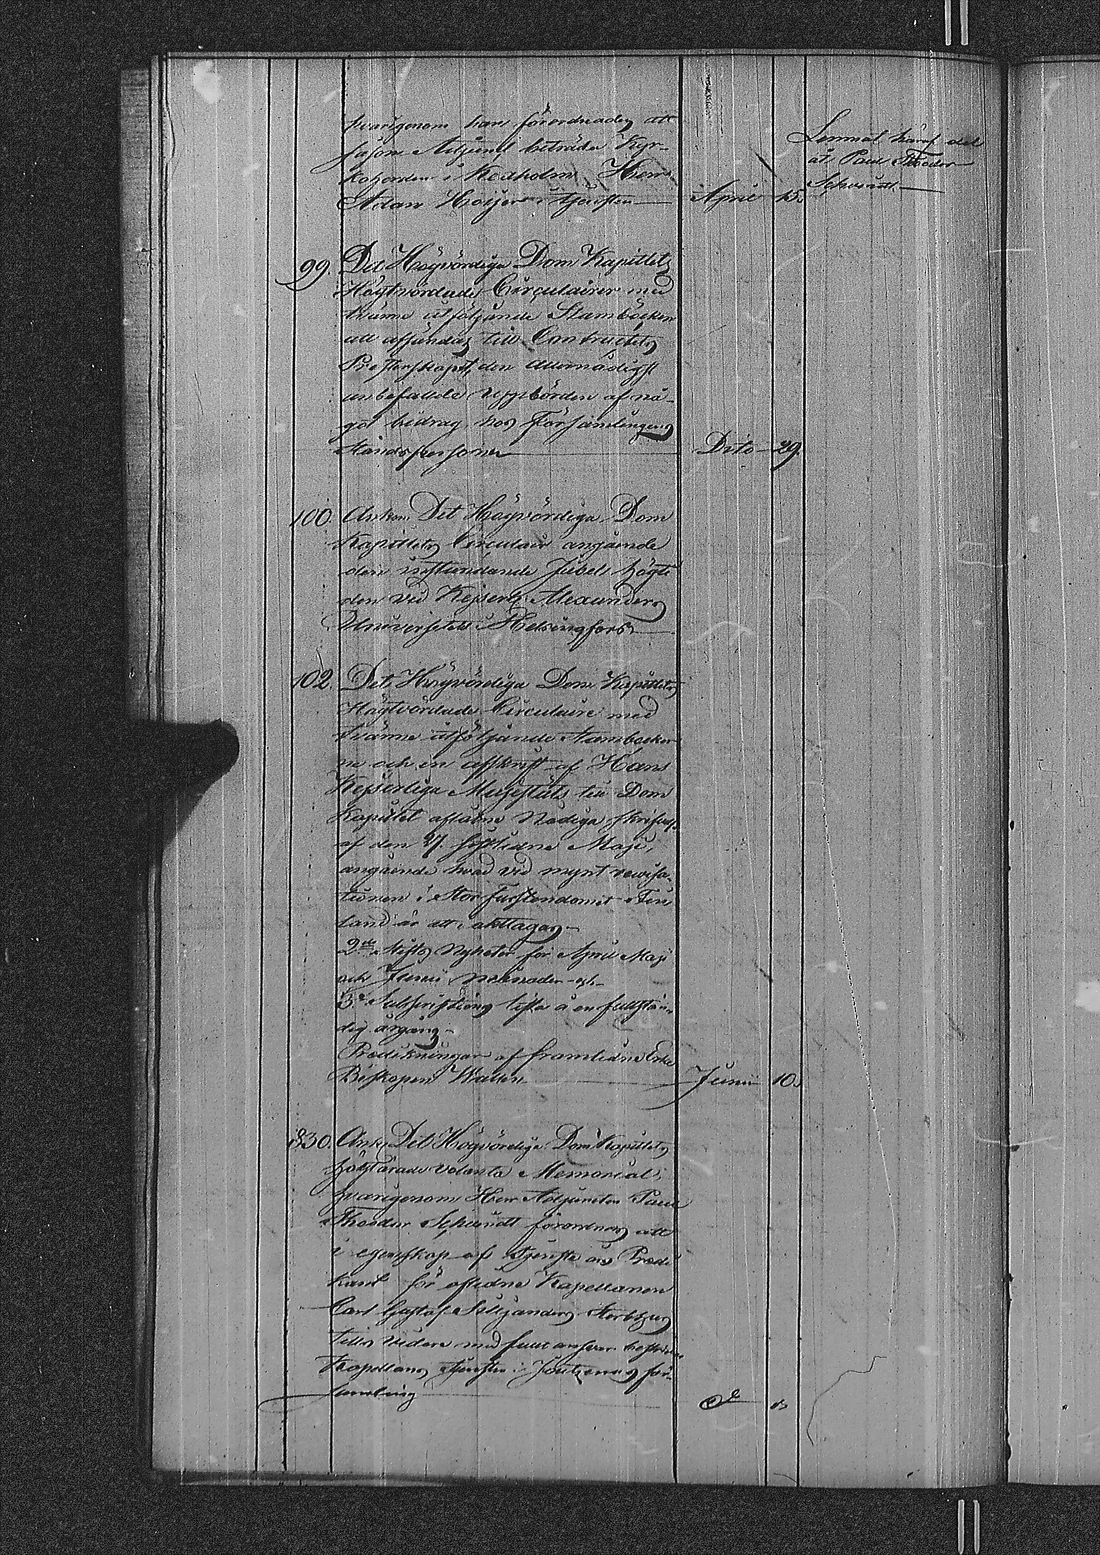 hvarigenom han förordnades att
såsom Adjunct biträda Kyr-
koherden i Kexholm Herr
Adam Hoijer i tjensten April 15.
Lemnat häraf del
åt Paul Theodor
Schwindt
99. Det Högvördiga Dom Kapitlets
Högtvördade Circulairer med
hvarme åtföljande Stamböcker
att afsändas till Contractets
Presterskapet, den allernådigst
anbefallde uppbörden af nå-
got bidrag hos Församlingens
Ståndspersoner Dito 29.
100. Ankom Det Högvördiga Dom
Kapitlets Circulair angående
den instundande Jubel högti
den vid Kejserl. Alexanders
Universitetet i Helsingfors
102. Det Högvördiga Dom Kapitlets
Högtvördade Circulaire med
hvarme åtföljande Stamböcker
ne och en afskrift af Hans
Kejserliga Majestäts till Dom
Kapitlet aflåtne Nådiga skrifvelse
af den 27 sistledne Maji,
angående hvad vid mynt rewisa-
tionen i Stor Furstendömet Fin
land är att iakttagas
2 Stifts Nyheter för April Maji
och Junii månader och
3 Subskriptions lista å en fullstän-
dig årgång
Predikningar af framledne Erke
Biskopen Junii 10.
1830. Ank. Det Högvördiga Dom Kapitlets
högtärade Memorial,
hvarigenom Herr Adjuncten Paul
Theodor Schwindt förordnas att
i egenskap af tjenste års Predi
kant för aflidne Kapellanen
Carl Gustaf Sterbhus
tills vidare med fullt ansvar bestrida
Kapellans tjensten i Joutseno för-
samling